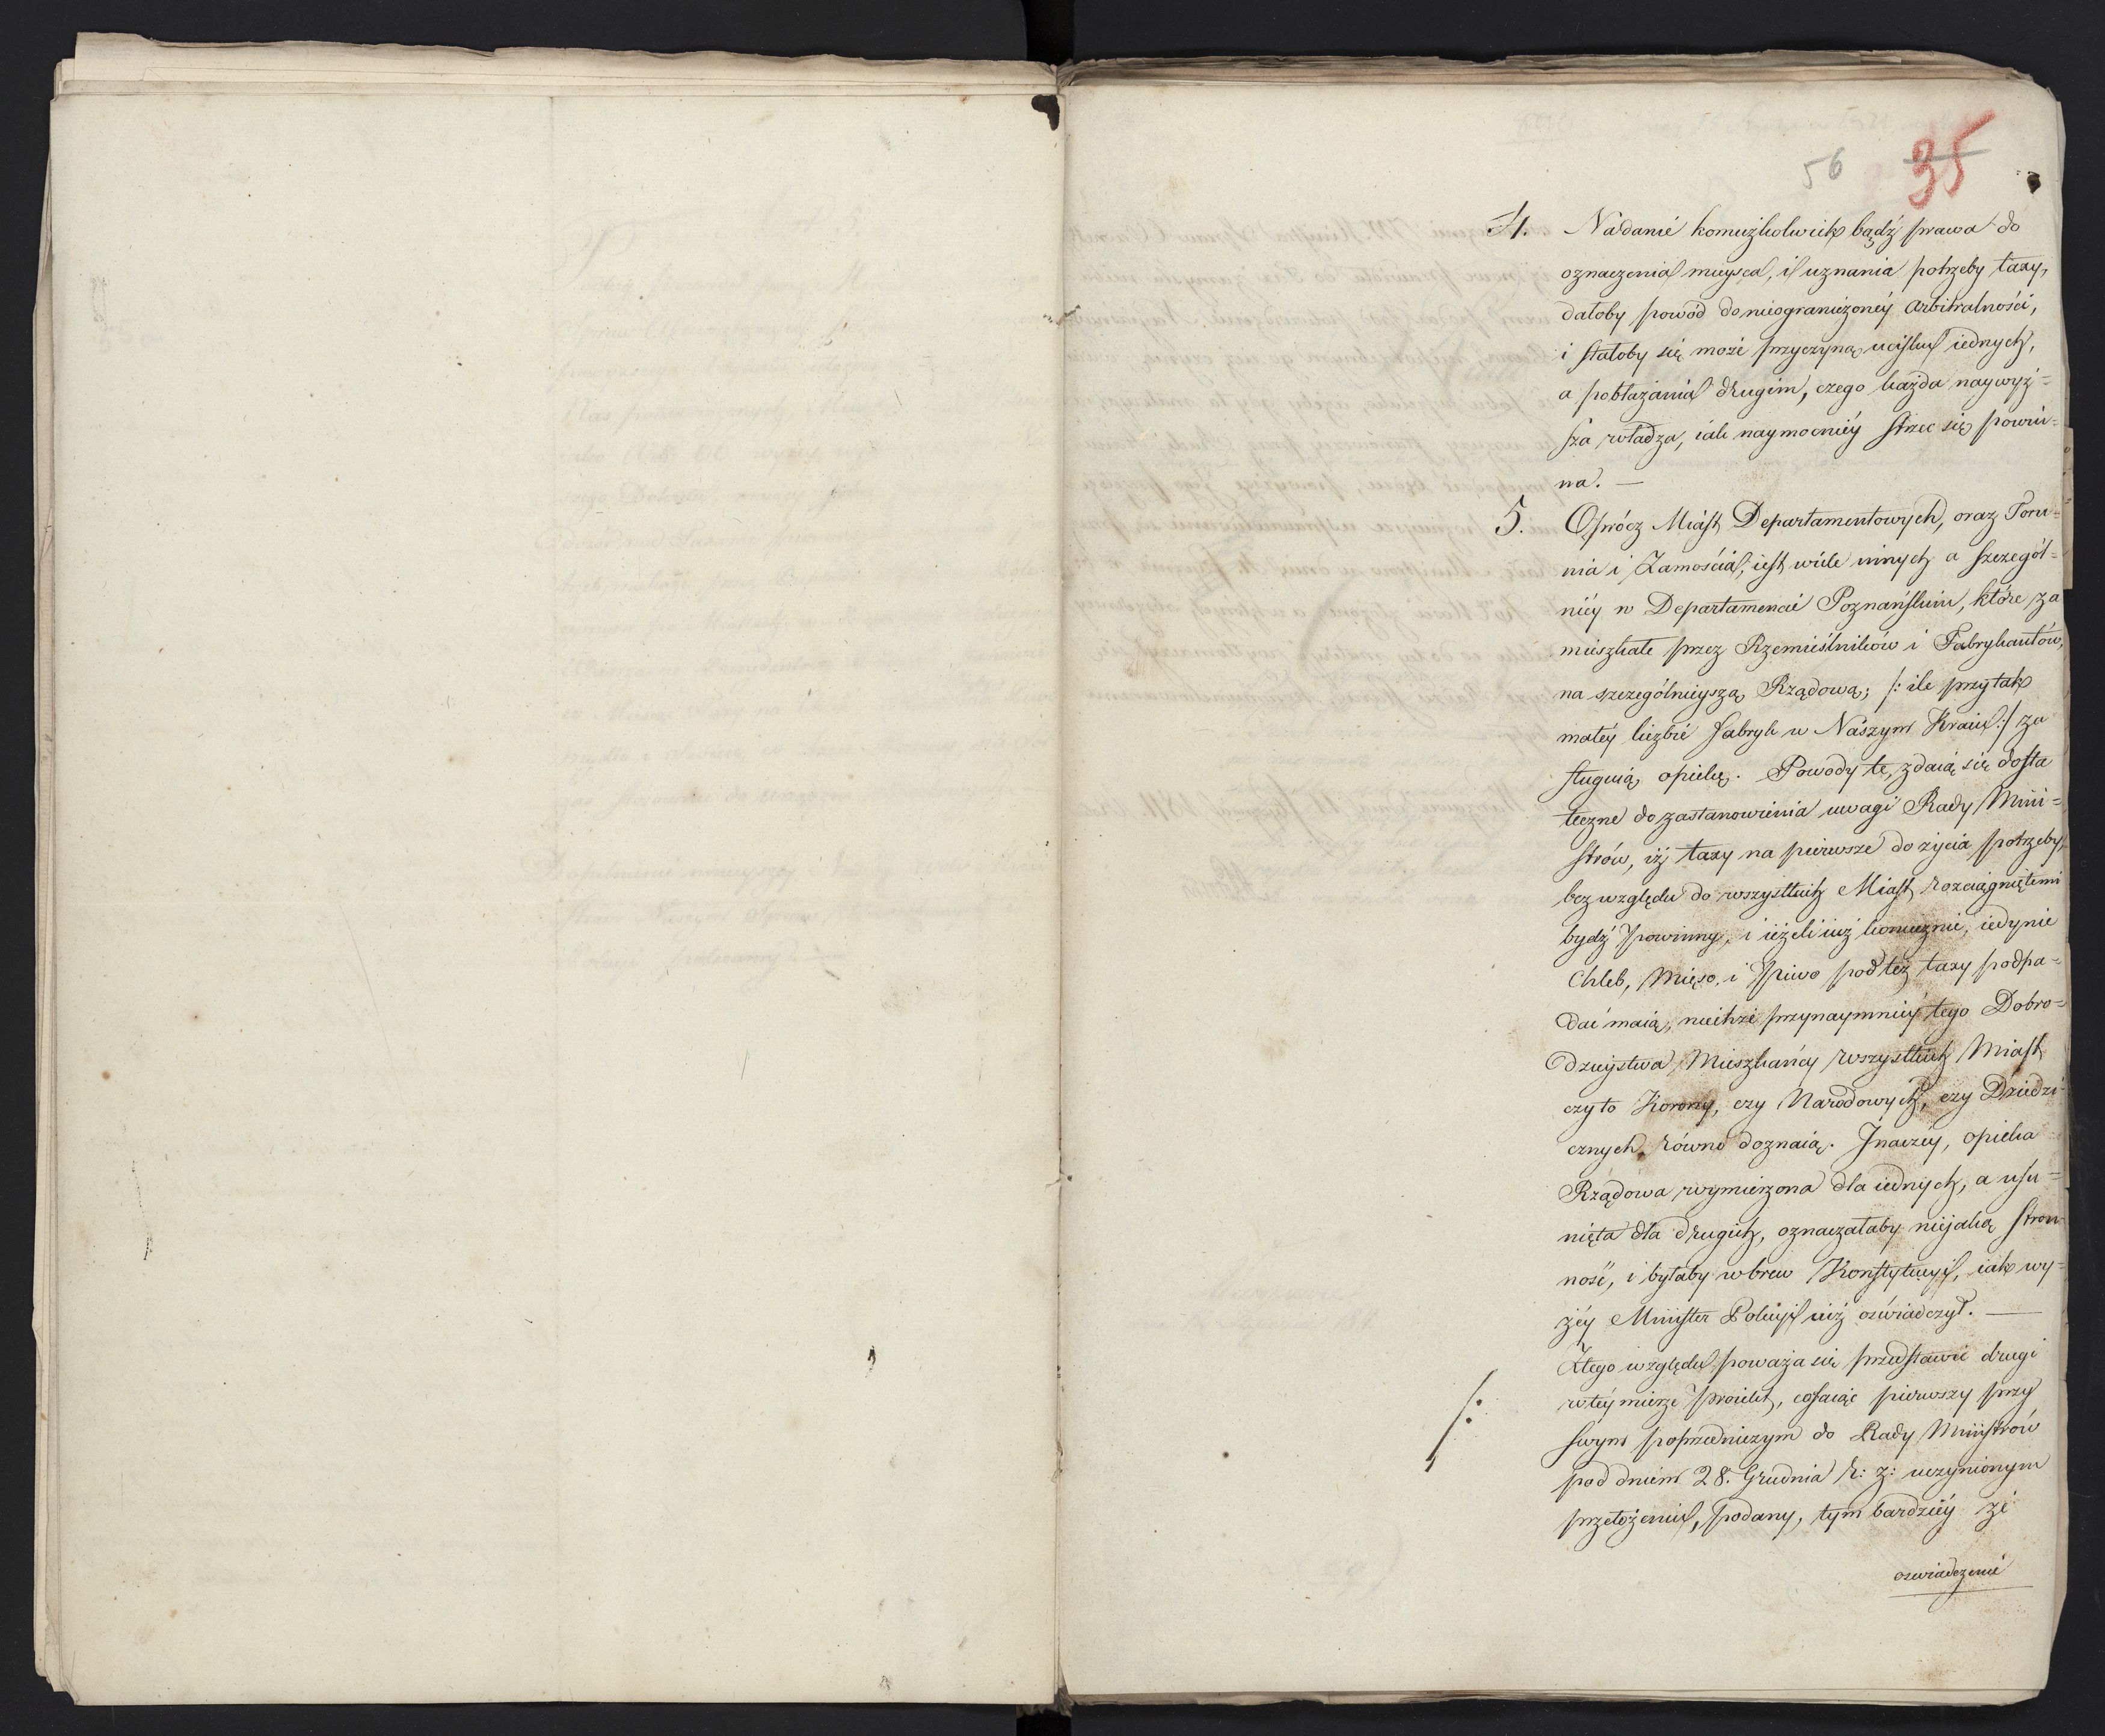 56 35
4. Nadanie komużkolwiek bądź prawa do
oznaczenia mieysca, i uznania potrzeby taxy,
dałoby powód do nieograniczoney arbitralności,
i stałoby się może przyczyną ucisku iednych,
a pobłażania drugim, czego każda naywyż=
sza władza, iak naymocniéy strzec się powin=
na. —
5. Oprócz Miast Departamentowych, oraz Toru=
nia i Zamościa, iest wiele innych a szczegól=
niéy w Departamencie Poznańskim, które za
mieszkałe przez Rzemieślników i Fabrykantów,
na szczególnieyszą Rządową; /: ile przy tak
małéy liczbie fabryk w Naszym Kraiu :/ za
sługuią opiekę. Powody te, zdaią się dosta
teczne do zastanowienia uwagi Rady Mini=
strów, iż taxy na pierwsze do życia potrzeby,
bez względu do wszystkich Miast rozciągniętemi
bydź powinny, i ieżeli iuż koniecznie, iedynie
Chleb, Mięso, i Piwo pod też taxy podpa=
dać maią, niechże przynaymniéy tego Dobro=
dzieystwa Mieszkańcy wszystkich Miast
czyto Korony, czy Narodowych, czy Dziedzi=
cznych, równo doznaią. Inaczéy, opieka
Rządowa wymierzona dla iednych, a usu=
nięta dla drugich, oznaczałaby nieiaką stron
ność, i byłaby wbrew Konstytucyi, iak wy=
żéy Minister Policyi iuż oświadczył. —
Z tego względu poważa się przedstawić drugi
/: w téy mierze proiekt, cofaiąc pierwszy przy
swym poprzedniczym do Rady Ministrów
pod dniem 28. Grudnia r: z: uczynionym
przełożeniu, podany, tym bardziéy że
oświadczenie